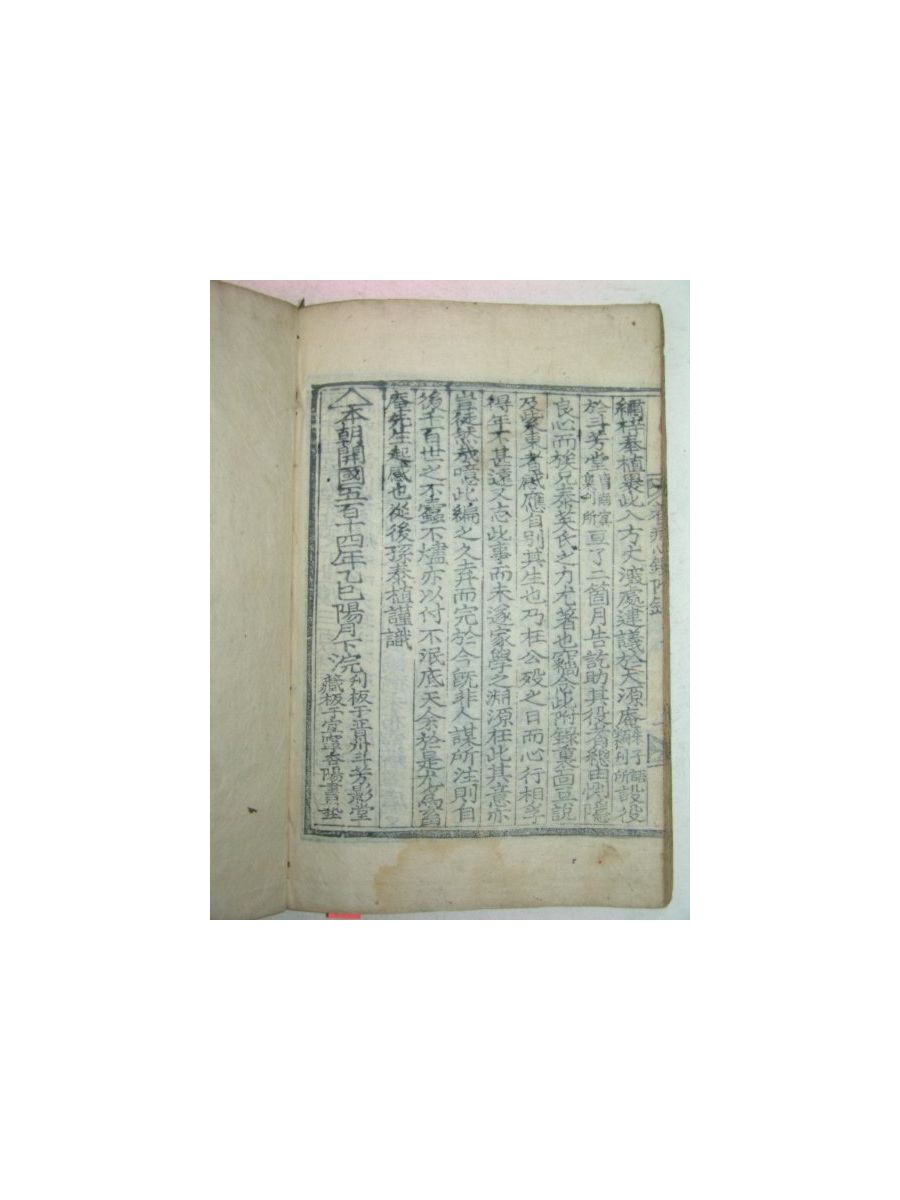 緝梓泰植與此入方丈濱處建議於大源庵 設役
於斗芳堂 亘了二箇月告訖助其役者總由惻隱
良心而族兄泰英氏之方尤著也竊念此附錄裏面豆說
及 東者感應自別其生也乃在公歿之日而心行相孚
得年不甚遠又志此事而未遂家學之淵源在此其意亦
豈徒然哉噫此編之久弆而完於今旣非人謀所注則自
後千百世之不蠹不燼亦以付不泯底天余於是尤爲
庵先生起感也從後孫泰植謹識
本朝開國五百十四年乙巳陽月下浣
刋板于晋州斗芳影堂
藏板于宜寧 陽書塾